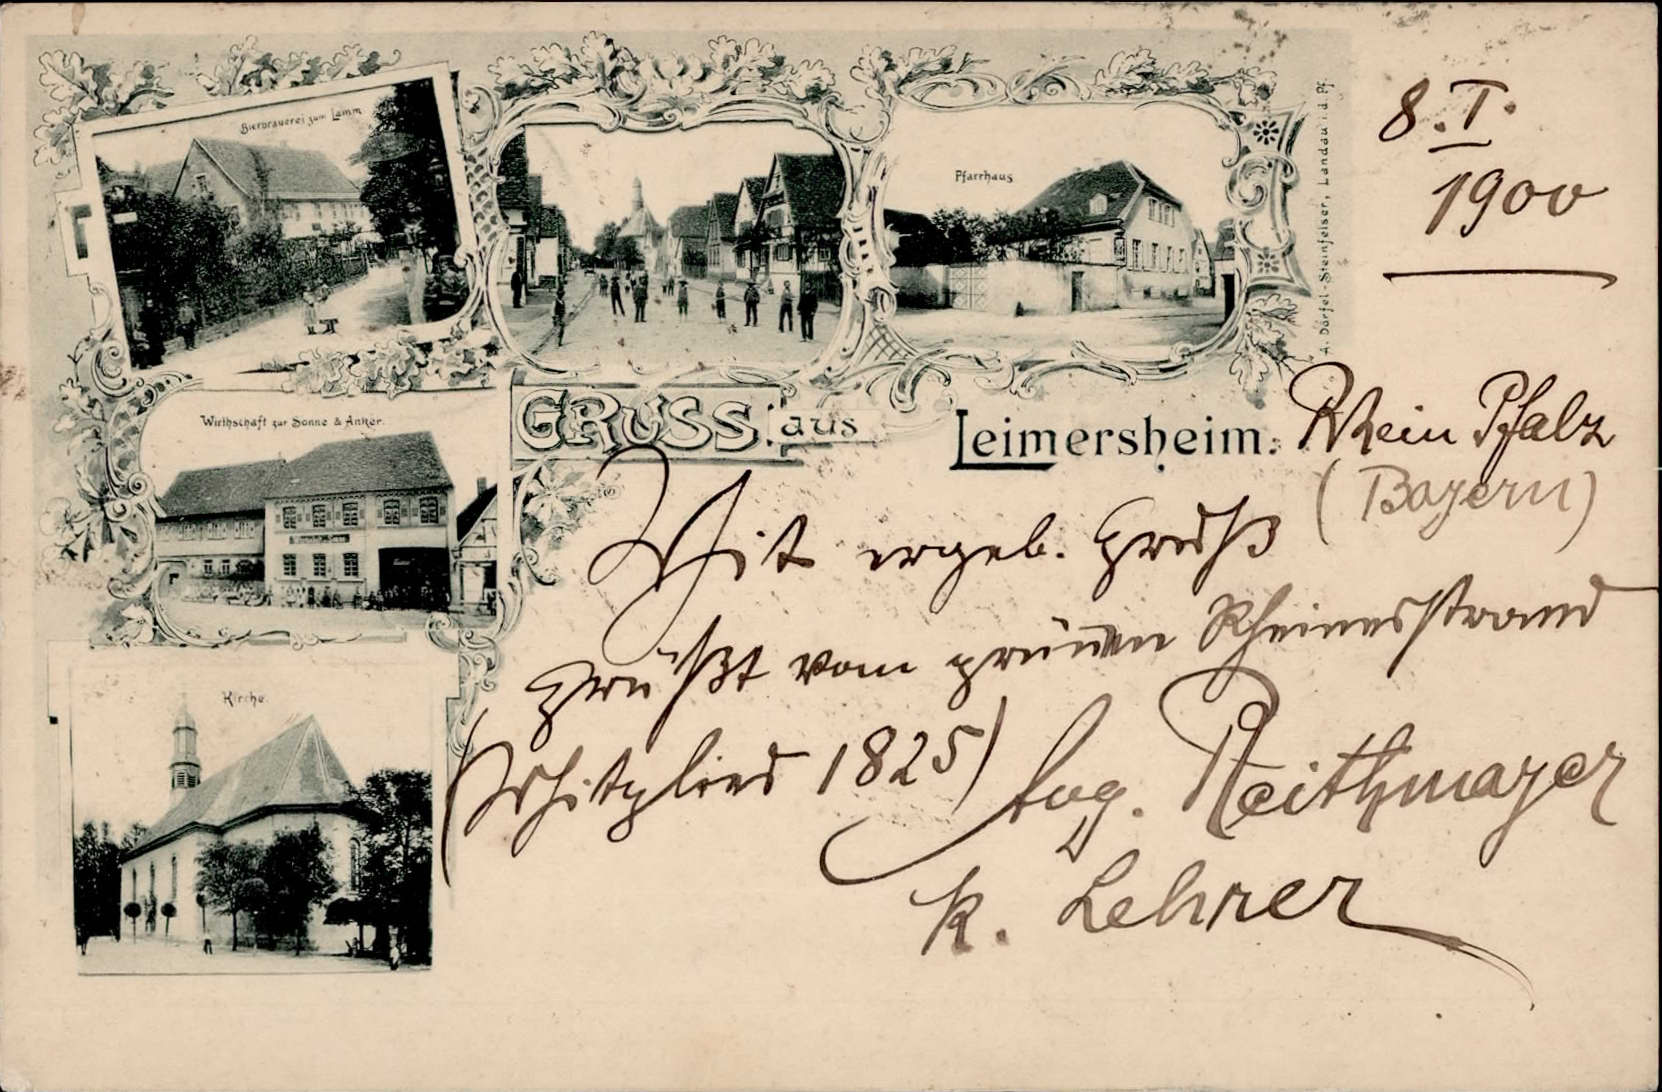 Bierbrauerei zum Lamm
Pfarrhaus
A. Dörfel-Steinfelser, Landau i. d. Pf.
8. I.
1900
Wirthschaft zur Sonne & Anker.
GRUSS aus Leimersheim. Rhein Pfalz
(Bayern)
Mit ergeb. Gruß
grüßt vom grünen Rheinesstrand
(Mitglied 1825) Aug. Reithmayer
k. Lehrer
Kirche.